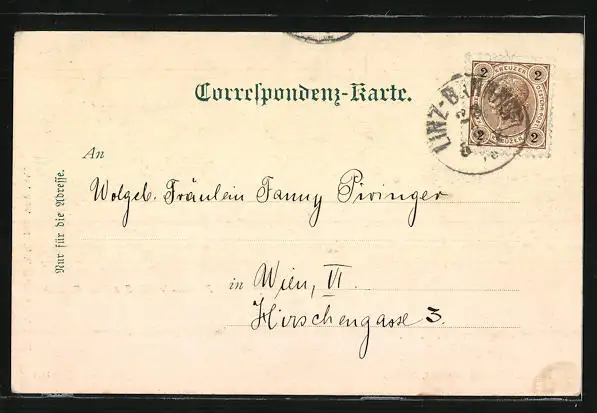 Correspondenz-Karte.
2 KREUZER 2
2 KREUZER 2
LINZ-B
An
Wolgeb. Fräulein Fanny Piringer
in Wien, VI.
Hirschengasse 3.
Nur für die Adresse.